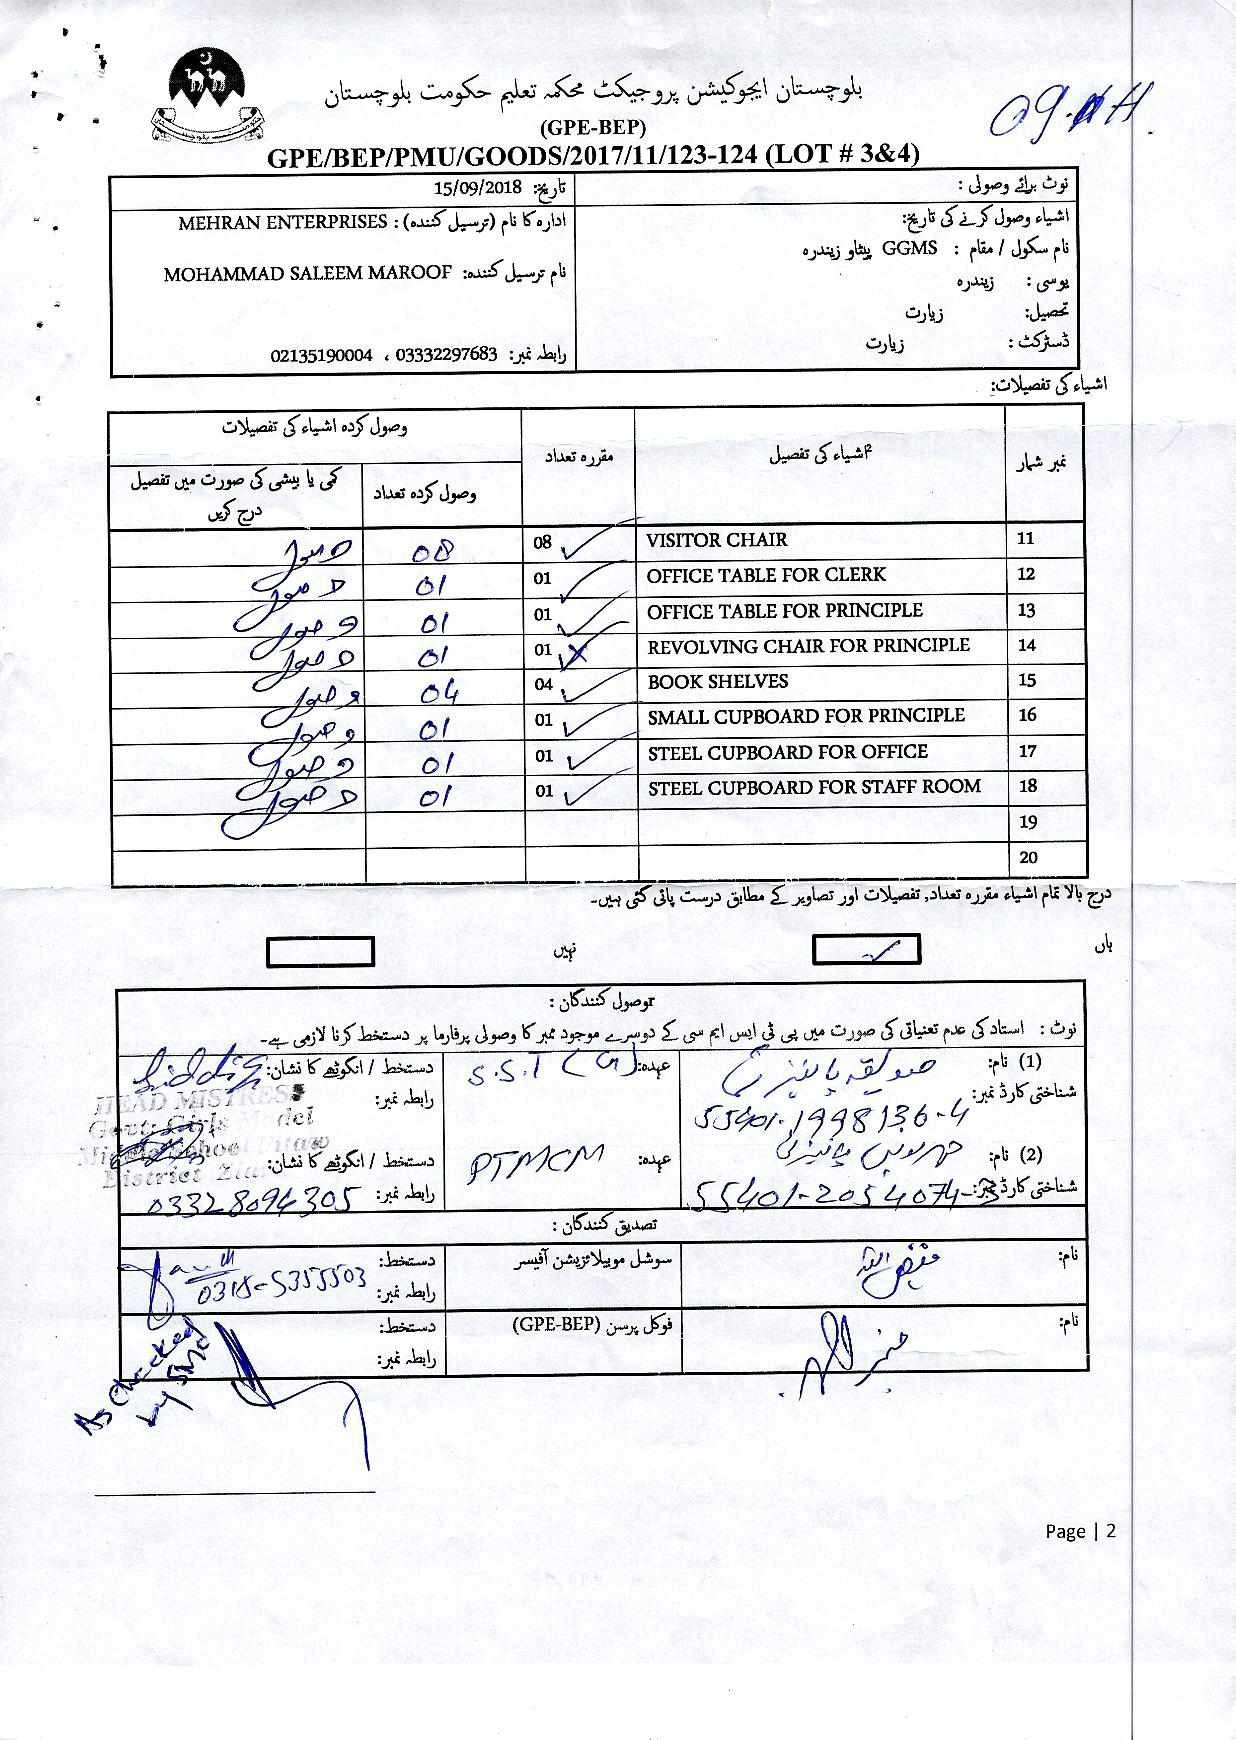 بلوچستان ایجوکیشن پروجیکٹ محکمہ تعلیم حکومت بلوچستان
(GPE-BEP)
GPE/BEP/PMU/GOODS/2017/11/123-124 (LOT # 3&4)
نوٹ برائے وصولی :
تاریخ: 15/09/2018
اشیاء وصول کرنے کی تاریخ:
ادارہ کا نام (ترسیل کنندہ) : MEHRAN ENTERPRISES
نام سکول / مقام : GGMS پیٹاو زیندرہ
نام ترسیل کنندہ: MOHAMMAD SALEEM MAROOF
یوسی : زیندرہ
تحصیل: زیارت
ڈسٹرکٹ : زیارت
رابطہ نمبر: 03332297683 ، 02135190004
اشیاء کی تفصیلات:
نمبر شمار اشیاء کی تفصیل مقررہ تعداد وصول کردہ اشیاء کی تفصیلات
وصول کردہ تعداد کمی یا بیشی کی صورت میں تفصیل درج کریں
11 VISITOR CHAIR 08 08 وصول
12 OFFICE TABLE FOR CLERK 01 01 وصول
13 OFFICE TABLE FOR PRINCIPLE 01 01 وصول
14 REVOLVING CHAIR FOR PRINCIPLE 01 01 وصول
15 BOOK SHELVES 04 04 وصول
16 SMALL CUPBOARD FOR PRINCIPLE 01 01 وصول
17 STEEL CUPBOARD FOR OFFICE 01 01 وصول
18 STEEL CUPBOARD FOR STAFF ROOM 01 01 وصول
19
20
درج بالا تمام اشیاء مقررہ تعداد, تفصیلات اور تصاویر کے مطابق درست پائی گئی ہیں۔
ہاں نہیں
وصول کنندگان :
نوٹ : استاد کی عدم تعیناتی کی صورت میں پی ٹی ایس ایم سی کے دوسرے موجود ممبر کا وصولی پرفارما پر دستخط کرنا لازمی ہے۔
(1) نام: عہدہ: S.S.T (G) دستخط / انگوٹھے کا نشان: Siddiqa
شناختی کارڈ نمبر: 55401-1998136-4 رابطہ نمبر:
HEAD MISTRESS
Govt: Girls Model
Middle School
District
(2) نام: عہدہ: PTMCM دستخط / انگوٹھے کا نشان:
شناختی کارڈ نمبر: 55401-2054074-3 رابطہ نمبر: 03328094305
تصدیق کنندگان :
نام: سوشل موبیلائزیشن آفیسر دستخط:
رابطہ نمبر: 0318-5355503
نام: فوکل پرسن (GPE-BEP) دستخط:
رابطہ نمبر:
As Checked
by SMO
Page | 2